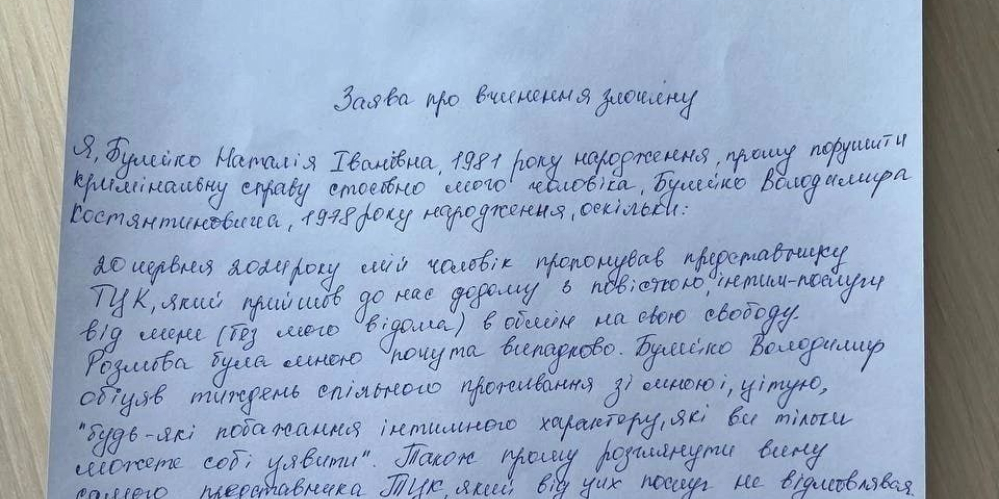 Заява про вчинення злочину
Я, Булейко Наталія Іванівна, 1981 року народження, прошу порушити
кримінальну справу стосовно мого чоловіка, Булейко Володимира
Костянтиновича, 1978 року народження, оскільки:
20 червня 2024 року мій чоловік пропонував представнику
ТЦК, який прийшов до нас додому з повісткою, інтим-послуги
від мене (без мого відома) в обмін на свою свободу.
Розмова була мною почута випадково. Булейко Володимир
обіцяв тиждень спільного проживання зі мною і, цітую,
"будь-які побажання інтимного характору, які ви тільки
можете собі уявити". Також прошу розглянути вину
самого представника ТЦК, який від цих послуг не відмовлявся